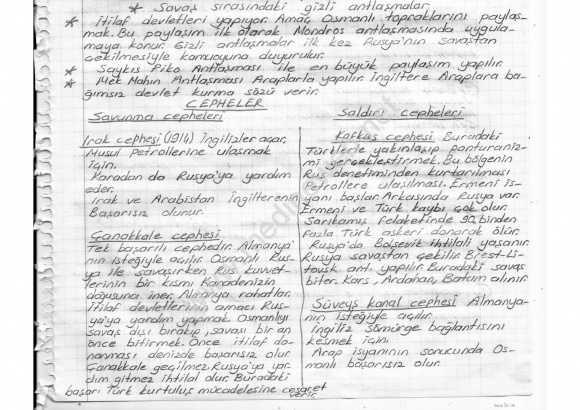 * Savaş sırasındaki gizli antlaşmalar
* İtilaf devletleri yapıyor. Amaç Osmanlı topraklarını paylaş-
mak. Bu paylaşım ilk olarak Mondros antlaşmasında uygula-
maya konur. Gizli antlaşmalar ilk kez Rusya'nın savaştan
çekilmesiyle kamuoyuna duyurulur.
* Saykıs Piko Antlaşması ile en büyük paylaşım yapılır.
* Mek Mahın Antlaşması Araplarla yapılır. İngiltere Araplara ba-
ğımsız devlet kurma sözü verir.
CEPHELER
Savunma cepheleri
Irak cephesi (1914) İngilizler açar.
Musul petrollerine ulaşmak
için.
Karadan da Rusya'ya yardım
eder.
Irak ve Arabistan İngilterenin
Başarısız olunur.
Çanakkale cephesi
Tek başarılı cephedir. Almanya'
nın isteğiyle açılır. Osmanlı Rus-
ya ile savaşırken Rus kuvvet-
lerinin bir kısmı Kanadenizin
doğusuna iner. Almanya rahatlar.
İtilaf devletlerinin amacı Rus-
ya'ya yardım yapmak. Osmanlıyı
savaş dışı bırakıp, savaşı bir an
önce bitirmek. Önce itilaf do-
nanması denizde başarısız olur.
Çanakkale geçilmez. Rusya'ya yar-
dım gitmez ihtilal olur. Buradaki
başarı Türk kurtuluş mücadelesine cesaret
verir.
Saldırı cepheleri
Kafkas cephesi Buradaki
Türklerle yakınlaşıp panturaniz-
mi gerçekleştirmek. Bu bölgenin
Rus denetiminden kurtarılması
Petrollere ulaşılması. Ermeni is-
yanı başlar. Arkasında Rusya var.
Ermeni ve Türk kaybı çok olur.
Sarıkamış Felaketinde 90 binden
fazla Türk askeri donarak ölür.
Rusya'da Bolşevik ihtilali yaşanır.
Rusya savaştan çekilir. Brest-Li-
tovsk ant. yapılır. Buradaki savaş
biter. Kars, Ardahan, Batum alınır.
Süveyş kanal cephesi Almanya-
nın isteğiyle açılır.
İngiliz Sömürge bağlantısını
kesmek için.
Arap isyanının sonucunda Os-
manlı başarısız olur.